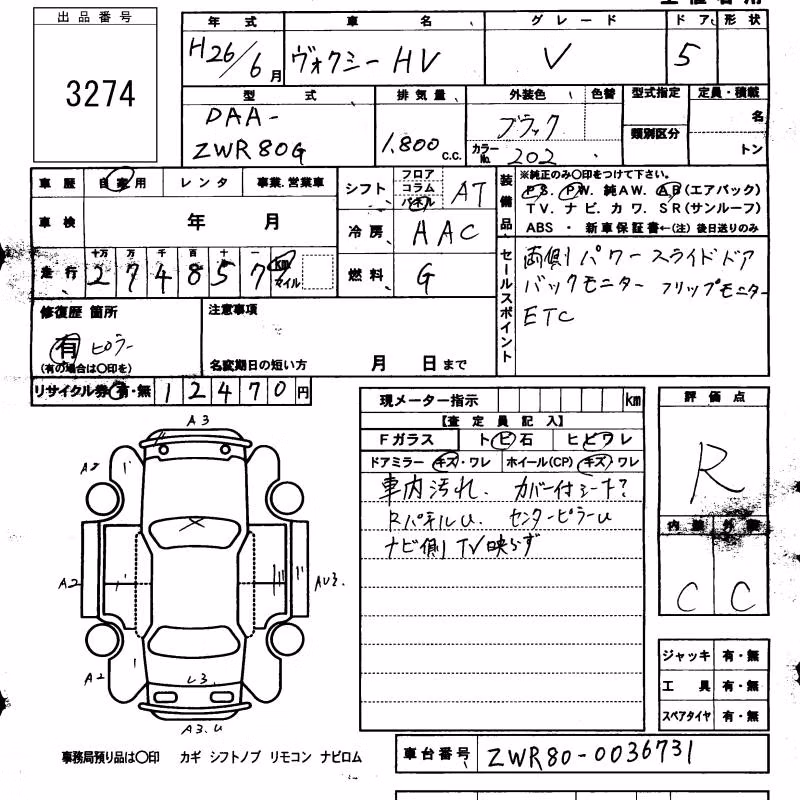 出品番号
3274
年式 車名 グレード ドア 形状
H26/6月 ヴォクシー HV V 5
型式 排気量 外装色 色替 型式指定 定員・積載
DAA-
ZWR80G
1,800 c.c.
ブラック
カラーNo. 202
類別区分
名
トン
車歴 自家用 レンタ 事業.営業車
車検 年 月
走行 十万 万 千 百 十 一
274857 km マイル
シフト フロア コラム パネル AT
冷房 AAC
燃料 G
装備品
※純正のみ○印をつけて下さい。
P.S. P.W. 純AW. AB(エアバック)
TV. ナビ. カワ. SR(サンルーフ)
ABS ・ 新車保証書←(注)後日送りのみ
セールスポイント
両側パワースライドドア
バックモニター フリップモニター
ETC
修復歴 箇所
有 ピラー
(有の場合は○印を)
注意事項
名変期日の短い方 月 日まで
リサイクル券 有・無 12470円
現メーター指示 km
【査定員記入】
Fガラス トビ石 ヒビワレ
ドアミラー キズ・ワレ ホイール(CP) キズ・ワレ
車内汚れ. カバー付シート?
RパネルU. センターピラーU
ナビ側TV映らず
評価点
R
内装 外装
C C
ジャッキ 有・無
工具 有・無
スペアタイヤ 有・無
A3
A2
A2
AU3.
A2
U3.
A3.U
事務局預り品は○印 カギ シフトノブ リモコン ナビロム
車台番号 ZWR80-0036731